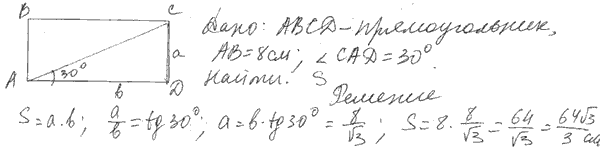 B C
Дано: ABCD - прямоугольник,
AB = 8 см; ∠CAD = 30°.
a
30°
Найти: S
A b D
Решение
S = a·b; a/b = tg 30°; a = b·tg 30° = 8/√3; S = 8·8/√3 = 64/√3 = 64√3/3 см